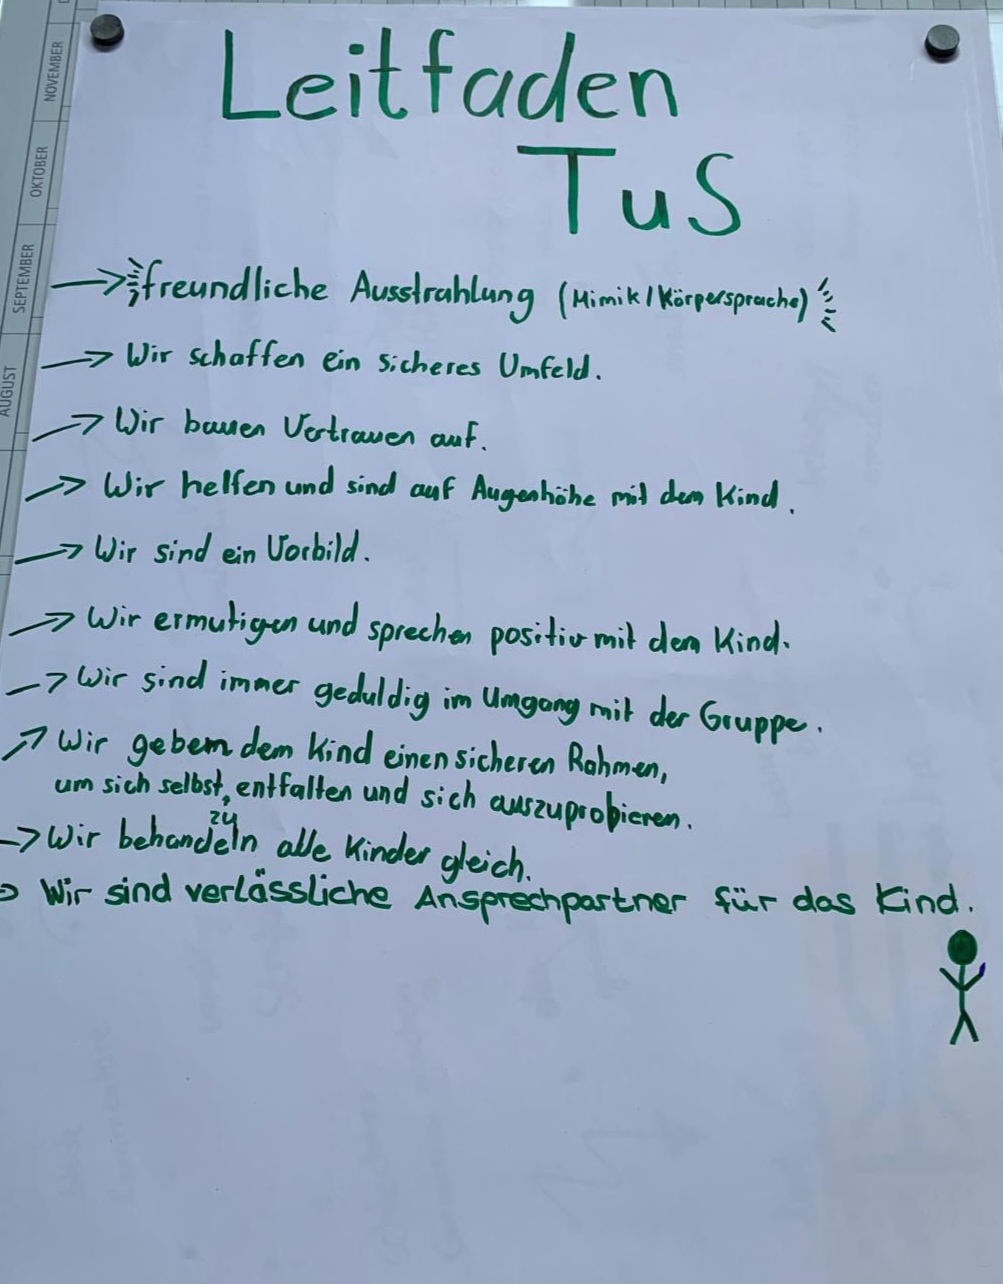 Leitfaden
TuS
→ freundliche Ausstrahlung (Mimik/Körpersprache)
→ Wir schaffen ein sicheres Umfeld.
→ Wir bauen Vertrauen auf.
→ Wir helfen und sind auf Augenhöhe mit dem Kind.
→ Wir sind ein Vorbild.
→ Wir ermutigen und sprechen positiv mit dem Kind.
→ Wir sind immer geduldig im Umgang mit der Gruppe.
→ Wir geben dem Kind einen sicheren Rahmen,
um sich selbst zu entfalten und sich auszuprobieren.
→ Wir behandeln alle Kinder gleich.
→ Wir sind verlässliche Ansprechpartner für das Kind.
NOVEMBER
OKTOBER
SEPTEMBER
AUGUST